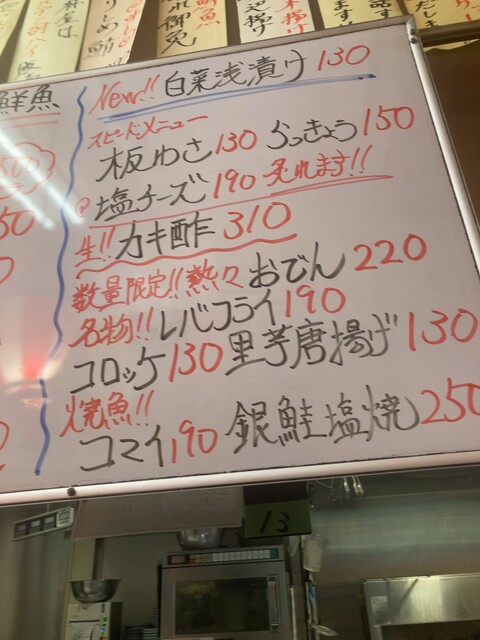 鮮魚
New!! 白菜浅漬け 130
スピードメニュー
板わさ 130 らっきょう 150
塩チーズ 190 炙れます!!
生!! カキ酢 310
数量限定!! 熱々 おでん 220
名物!! レバフライ 190
コロッケ 130 里芋唐揚げ 130
焼魚!!
コマイ 190 銀鮭塩焼 250
13